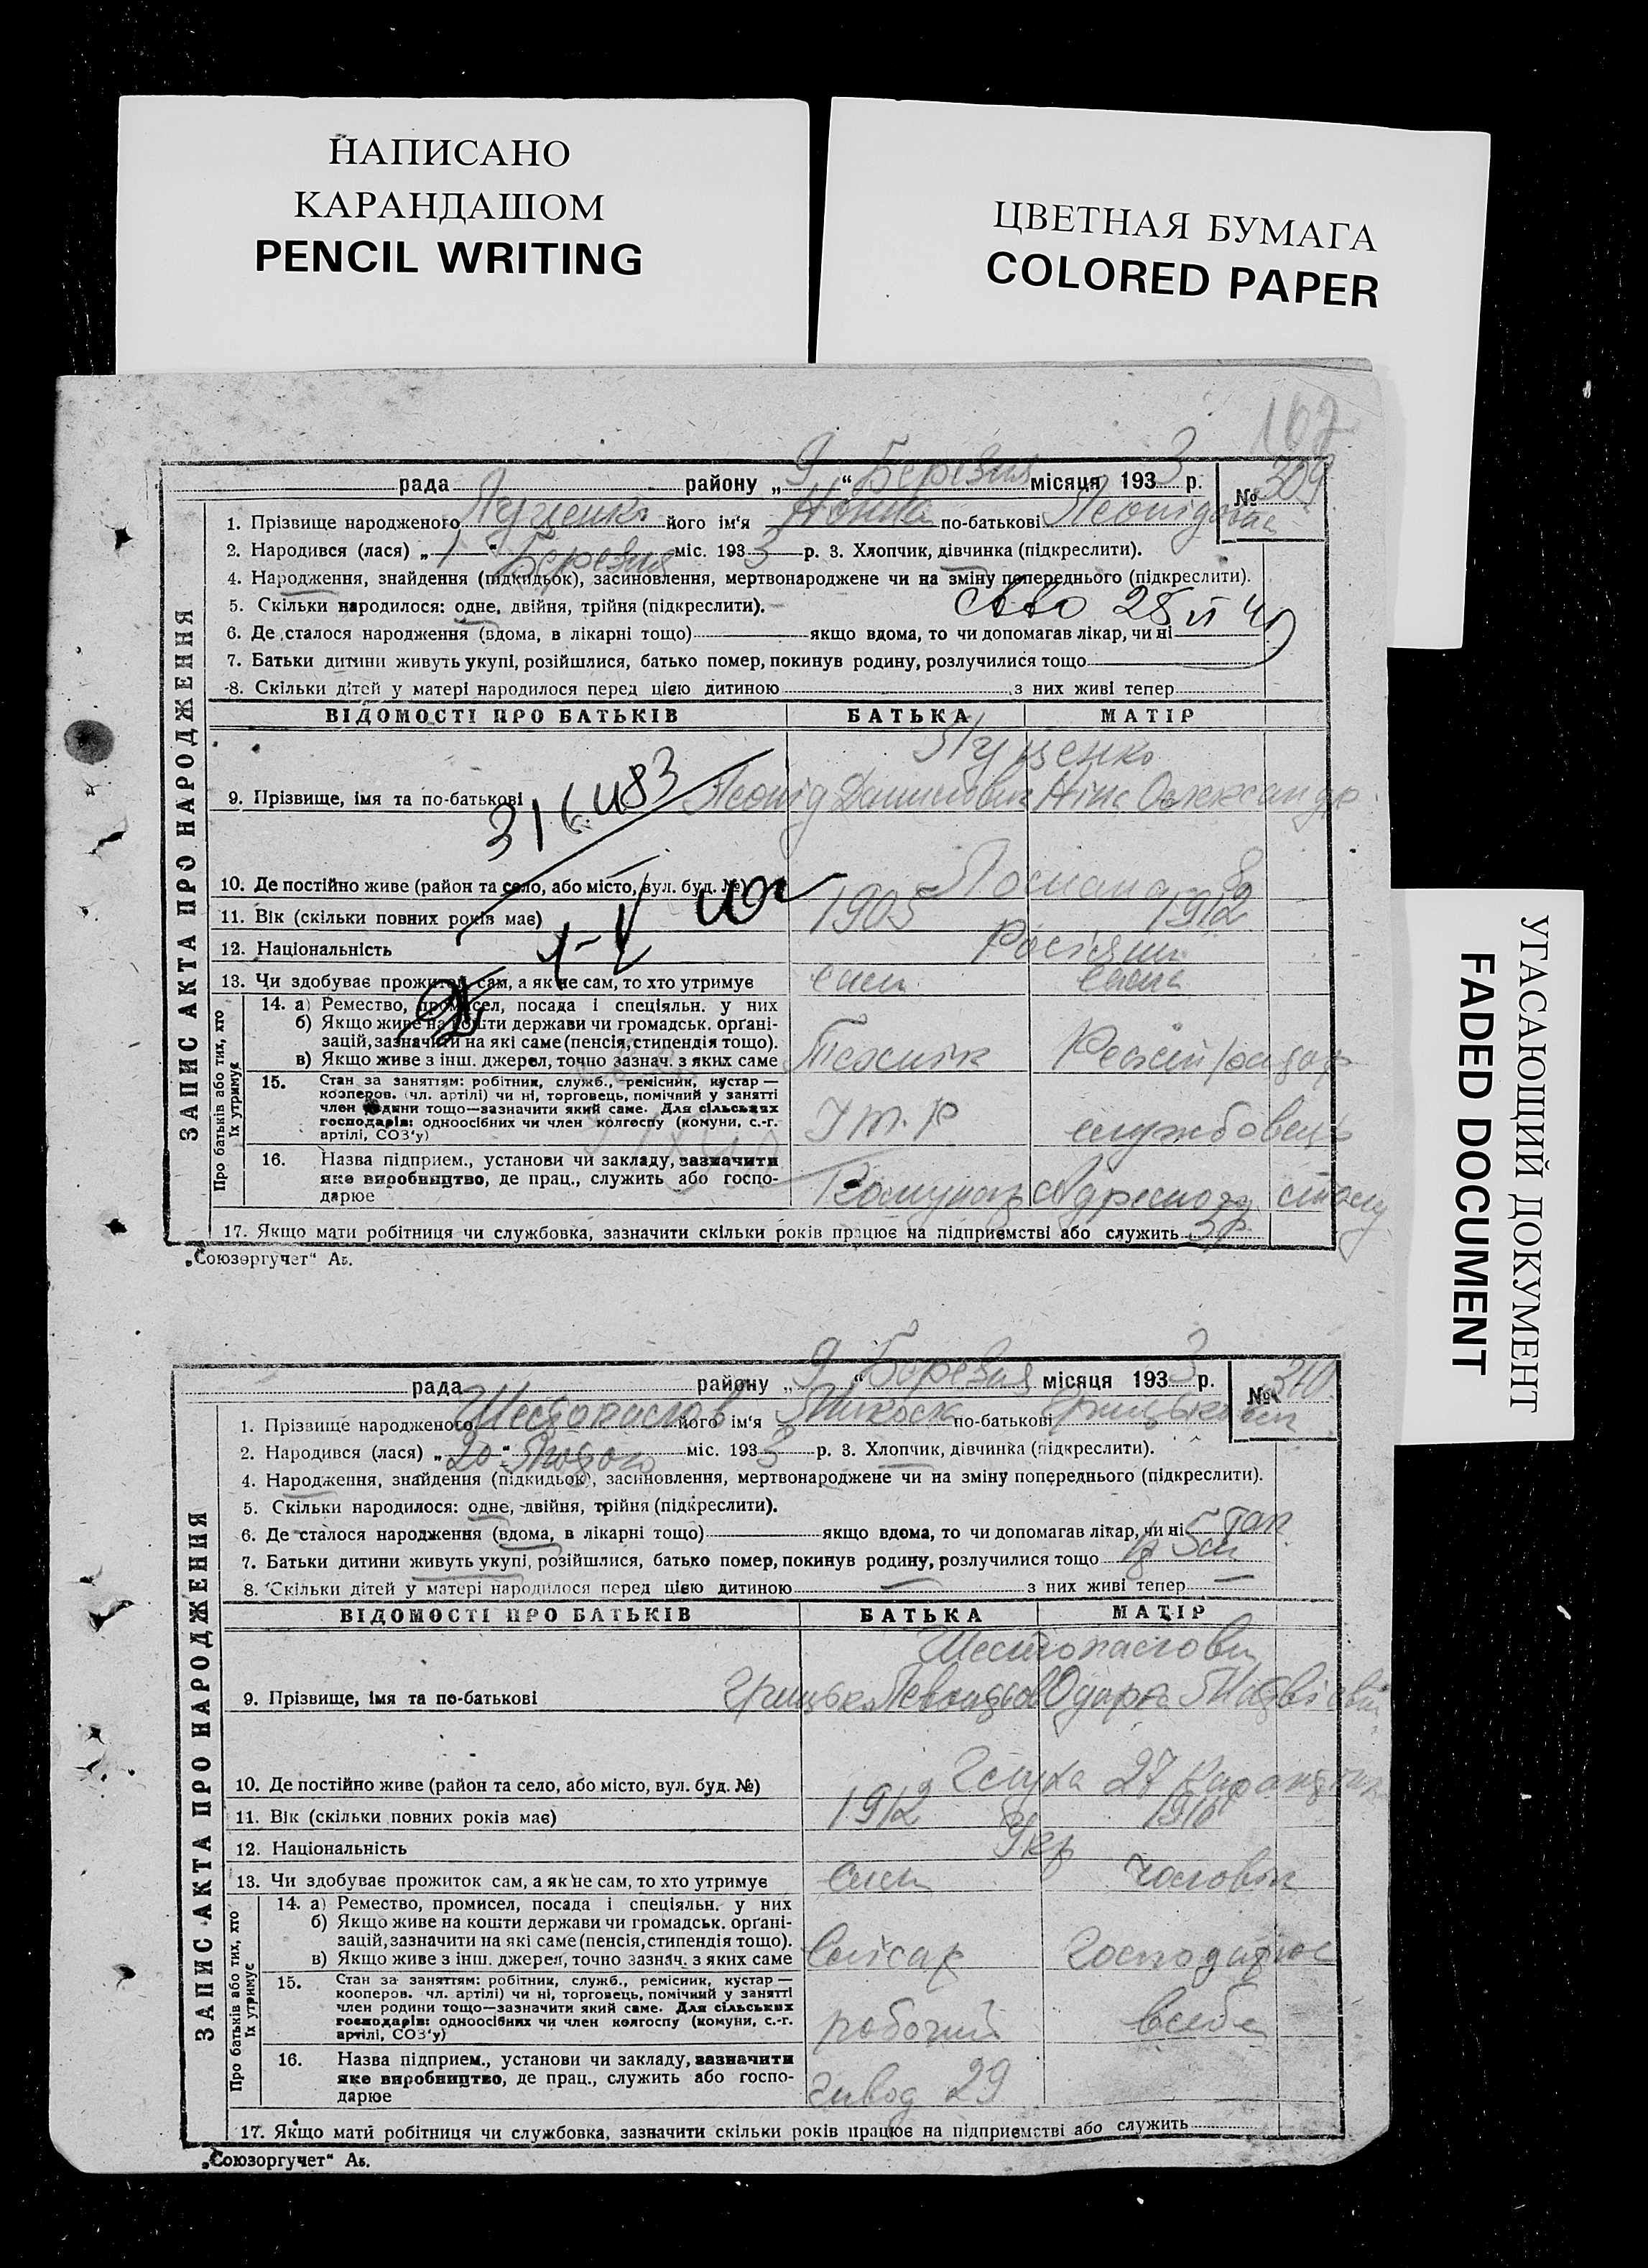 НАПИСАНО
КАРАНДАШОМ
PENCIL WRITING
ЦВЕТНАЯ БУМАГА
COLORED PAPER
УГАСАЮЩИЙ ДОКУМЕНТ
FADED DOCUMENT
167
рада району „ 9 “ Березня місяця 193 3 р. № 309
ЗАПИС АКТА ПРО НАРОДЖЕННЯ
1. Прізвище народженого Луценко його ім‘я Нонна по-батькові Леонідовна
2. Народився (лася) „ 1 “ Березня міс. 193 3 р. 3. Хлопчик, дівчинка (підкреслити).
4. Народження, знайдення (підкидьок), засиновлення, мертвонароджене чи на зміну попереднього (підкреслити).
5. Скільки народилося: одне, двійня, трійня (підкреслити).
6. Де сталося народження (вдома, в лікарні тощо) якщо вдома, то чи допомагав лікар, чи ні
7. Батьки дитини живуть укупі, розійшлися, батько помер, покинув родину, розлучилися тощо
8. Скільки дітей у матері народилося перед цією дитиною з них живі тепер
ВІДОМОСТІ ПРО БАТЬКІВ БАТЬКА МАТІР
Луценко
9. Прізвище, імя та по-батькові Леонід Ніна Олександр
10. Де постійно живе (район та село, або місто, вул. буд. №) 8
11. Вік (скільки повних років має) 1905 1912
12. Національність Росіяни
13. Чи здобуває прожиток сам, а як не сам, то хто утримує сам сама
Про батьків або тих, хто їх утримує
14. а) Ремество, промисел, посада і спеціяльн. у них
б) Якщо живе на кошти держави чи громадськ. орґані-
зацій, зазначити на які саме (пенсія, стипендія тощо).
в) Якщо живе з інш. джерел, точно зазнач. з яких саме Технік
15. Стан за заняттям: робітник, служб., ремісник, кустар —
козперов. (чл. артілі) чи ні, торговець, помічний у занятті
член родини тощо—зазначити який саме. Для сільських
господарів: одноосібних чи член колгоспу (комуни, с.-г.
артілі, СОЗ‘у) службовець
16. Назва підприєм., установи чи закладу, зазначити
яке виробництво, де прац., служить або госпо-
дарює столу
17. Якщо мати робітниця чи службовка, зазначити скільки років працює на підприємстві або служить 3р.
„Союзоргучет“ Аб.
рада району „ 9 “ Березня місяця 193 3 р. № 310
ЗАПИС АКТА ПРО НАРОДЖЕННЯ
1. Прізвище народженого Шестопалов його ім‘я Микола по-батькові Грицькович
2. Народився (лася) „ 20 “ Лютого міс. 193 3 р. 3. Хлопчик, дівчинка (підкреслити).
4. Народження, знайдення (підкидьок), засиновлення, мертвонароджене чи на зміну попереднього (підкреслити).
5. Скільки народилося: одне, двійня, трійня (підкреслити).
6. Де сталося народження (вдома, в лікарні тощо) якщо вдома, то чи допомагав лікар, чи ні
7. Батьки дитини живуть укупі, розійшлися, батько помер, покинув родину, розлучилися тощо
8. Скільки дітей у матері народилося перед цією дитиною — з них живі тепер —
ВІДОМОСТІ ПРО БАТЬКІВ БАТЬКА МАТІР
Шестопалови
9. Прізвище, імя та по-батькові Грицько Одарка Матвієвн
10. Де постійно живе (район та село, або місто, вул. буд. №) 27
11. Вік (скільки повних років має) 1912 1910
12. Національність Укр
13. Чи здобуває прожиток сам, а як не сам, то хто утримує сам чоловік
Про батьків або тих, хто їх утримує
14. а) Ремество, промисел, посада і спеціяльн. у них
б) Якщо живе на кошти держави чи громадськ. орґані-
зацій, зазначити на які саме (пенсія, стипендія тощо).
в) Якщо живе з інш. джерел, точно зазнач. з яких саме слісар господарює
15. Стан за заняттям: робітник, служб., ремісник, кустар —
кооперов. чл. артілі) чи ні, торговець, помічний у занятті
член родини тощо—зазначити який саме. Для сільських
господарів: одноосібних чи член колгоспу (комуни, с.-г.
артілі, СОЗ‘у) робочий всебе
16. Назва підприєм., установи чи закладу, зазначити
яке виробництво, де прац., служить або госпо-
дарює завод 29
17. Якщо мати робітниця чи службовка, зазначити скільки років працює на підприємстві або служить
„Союзоргучет“ Аб.